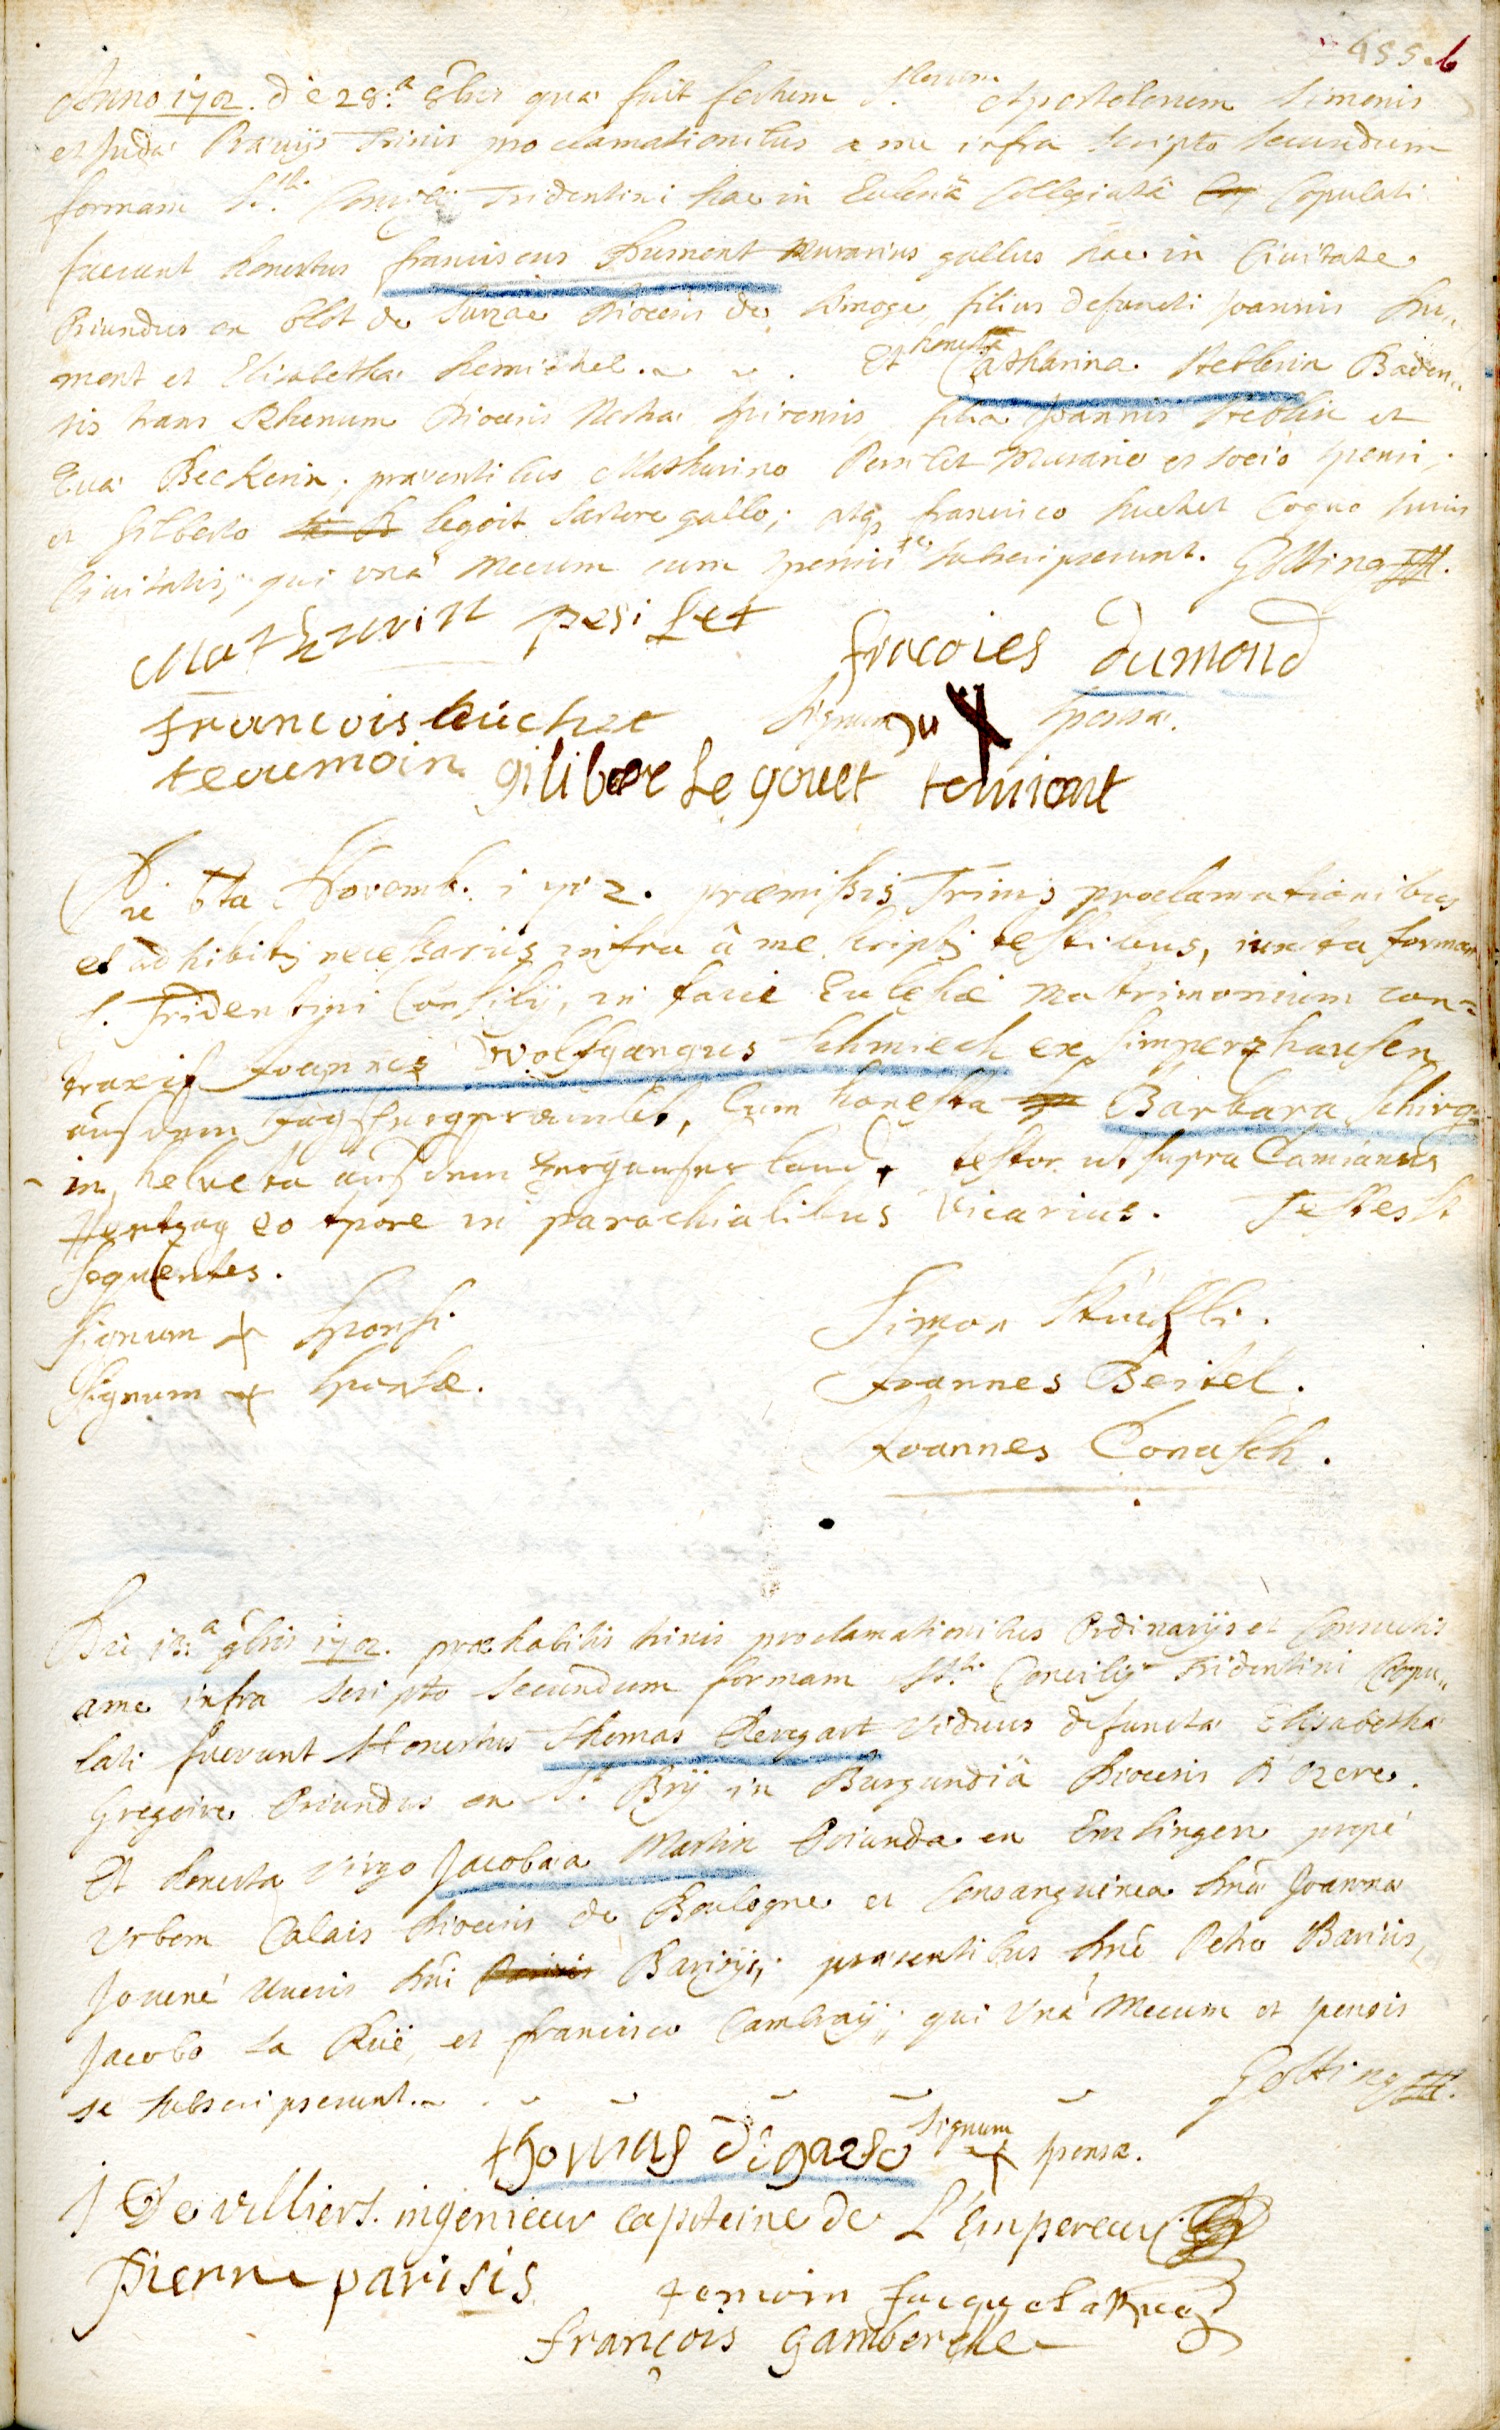 455.b
Anno 1702. die 28.a 8bris qua fuit festum S.torum Apostolorum Simonis
et Judæ Præviis Trinis proclamationibus a me infra scripto secundum
formam S.ti Concilii Tridentini hac in Ecclesiâ Collegiatâ Copulati
fuerunt honestus franciscus Dumont Murarius gallus hac in Civitate
Oriundus ex de diocesis de Limoge filius defuncti Joannis Du„
mont et Elisabetha . Et honesta Catharina Steblerin Baden„
sis trans Rhenum Diocesis Spirensis, filia Joannis Steblin et
Eva Beckerin, præsentibus Mathurino Murario et socio sponsi,
et Gilberto legoit sartore gallo; atq francisco huchet Coquo huius
Civitatis, qui unâ mecum cum sponsis se subscripserunt. Gölting
Mathurin pesilet
fracoies dumond
francois huchet signum sponsæ.
teoumoin giliber Le gouet temioint
Die 6ta Novemb. 1702. præmissis Trinis proclamationibus
et adhibitis necessariis infra â me scriptis testibus, iuxta formam
S. Tridentini Consilii, in facie Ecclesiæ Matrimonium con=
traxit Joannes Wolfgangus Schmiech ex Simperzhausen
auß dem, Cum honesta Barbara Schirg
in helveta auß dem land, testor ut supra Camianus
Hertzog eo tpore in parochialibus Vicarius. Testes st
sequentes.
Signum + sponsi
Simon Stüchli.
Signum + sponsæ.
Joannes Beitel.
Joannes Conasch.
Die 13.a 9bris 1702. præhabitis trinis proclamationibus Ordinariis et Consuetis
a me infra scripto secundum formam S.ti Concilii Tridentini Copu„
lati fuerunt Honestus Thomas Deregart Viduus defuncta Elisabetha
Gregoire Oriundus ex St. Brii in Burgundiâ Diocesis D'ozere.
Et honesta virgo Jacobæa Martin Oriunda ex Enslingen propé
Urbem Calais Diocesis de Boulogne et Consanguinea Joanna
Jouené Uxoris Dni Barisiis; præsentibus Dno Petro Barisis,
Jacobo La Ruë, et francisco Cambray; qui Unâ Mecum et sponsis
se subscripserunt. Gölting
thomas degare signum + sponsæ.
J De villiers. ingenieur capiteine de L'Empereur
pierre parisis temoin Jacque La Rue
françois gamberelle